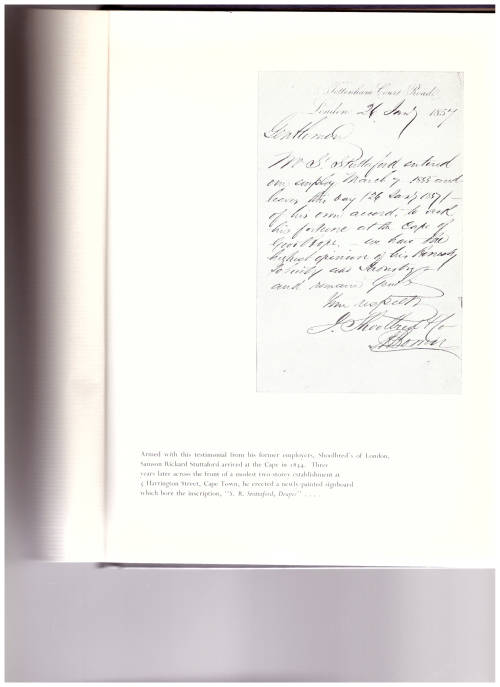 Tottenham Court Road,
London 26 Jany 1857
Gentlemen
Mr S. R. Stuttaford entered
our employ March 7 1855 and
leaves this day (26 Jany 1857)
of his own accord, to seek
his fortune at the Cape of
Good Hope. – we have the
highest opinion of his Honesty
Sobriety and
and remain Gents
Your respectfy
J. Shoolbred & Co
Armed with this testimonial from his former employers, Shoolbred's of London,
Samson Rickard Stuttaford arrived at the Cape in 1854. Three
years later across the front of a modest two-storey establishment at
5 Harrington Street, Cape Town, he erected a newly painted signboard
which bore the inscription, "S. R. Stuttaford, Draper" . . . .